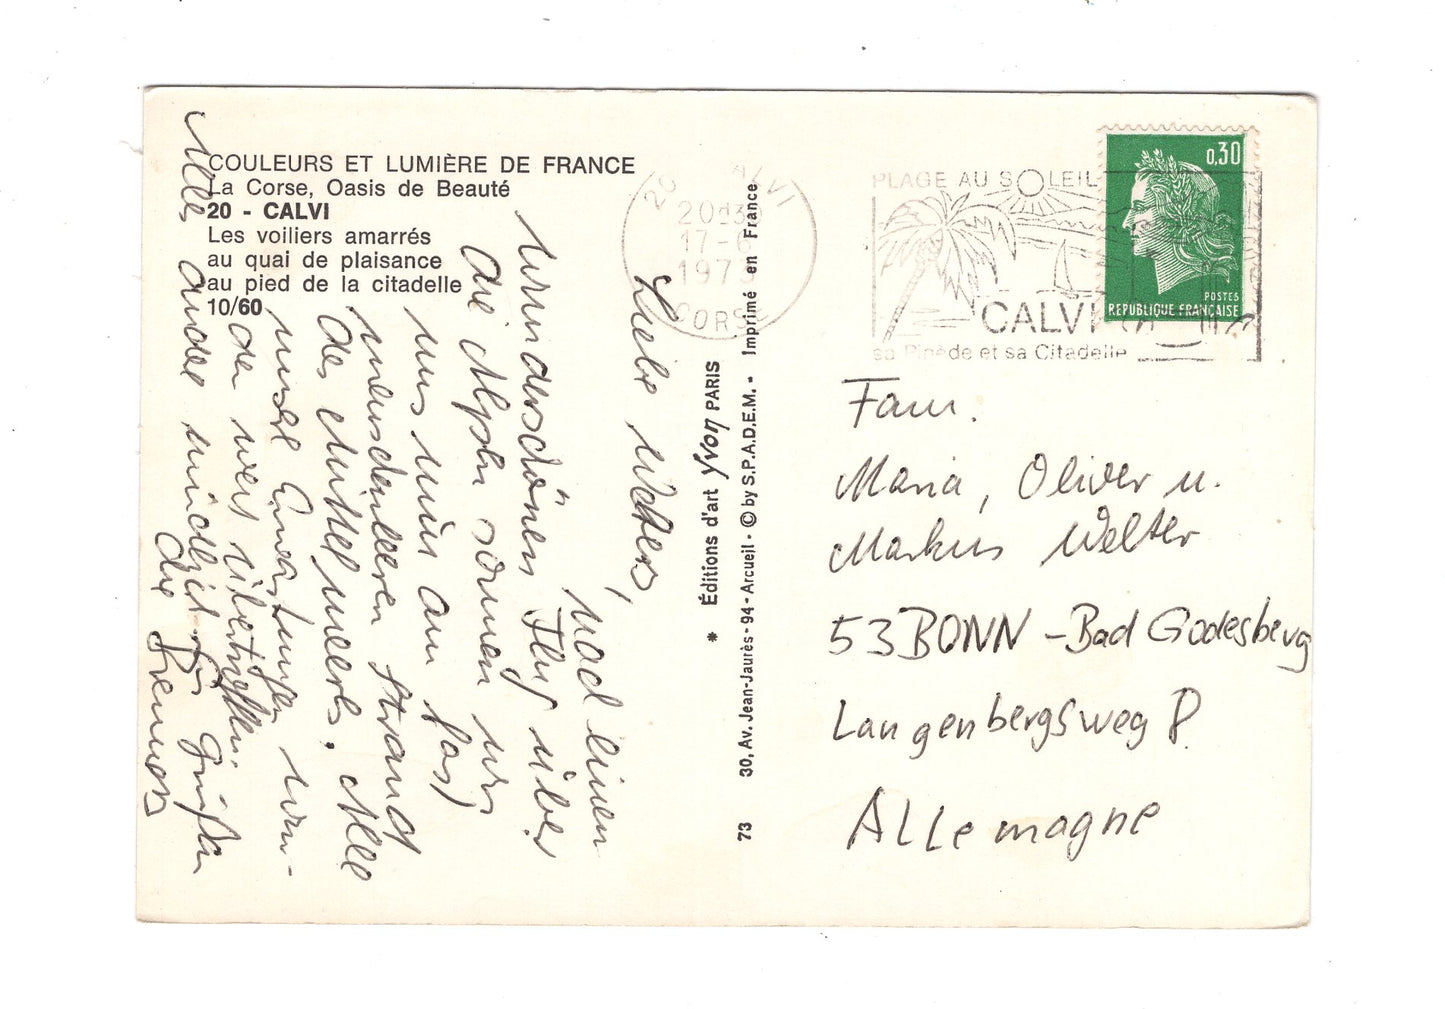 COULEURS ET LUMIÈRE DE FRANCE
La Corse, Oasis de Beauté
20 - CALVI
Les voiliers amarrés
au quai de plaisance
au pied de la citadelle
10/60
Liebe Welters,
Nach einen
wunderschönen Flug über
die Alpen sonnen wir
uns nun am fast
menschenleeren Strand
des Mittelmeers. Alle
unsere Erwartungen wur-
den weit übertroffen.
Alles andere mündlich
Grüßen
Die
* Éditions d'art Yvon PARIS
30, Av. Jean-Jaurès - 94 - Arcueil - © by S.P.A.D.E.M. - Imprimé en France
73
20 CALVI
20H30
17-6
197
CORSE
PLAGE AU SOLEIL
CALVI
sa Pinède et sa Citadelle
0,30
POSTES
REPUBLIQUE FRANÇAISE
Fam.
Maria, Oliver u.
Markus Welter
53 BONN - Bad Godesberg
Langenbergsweg 8
Allemagne